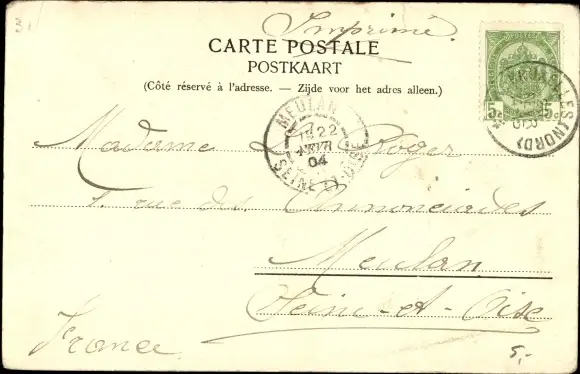 Imprimé.
CARTE POSTALE
POSTKAART
(Côté réservé à l'adresse. — Zijde voor het adres alleen.)
5c 5c
BRUXELLES (NORD)
MEULAN
7
22
AVR
04
SEINE-ET-OISE
Madame Roger
1. rue des Annonciades
Meulan
Seine-et-Oise
France
5,-